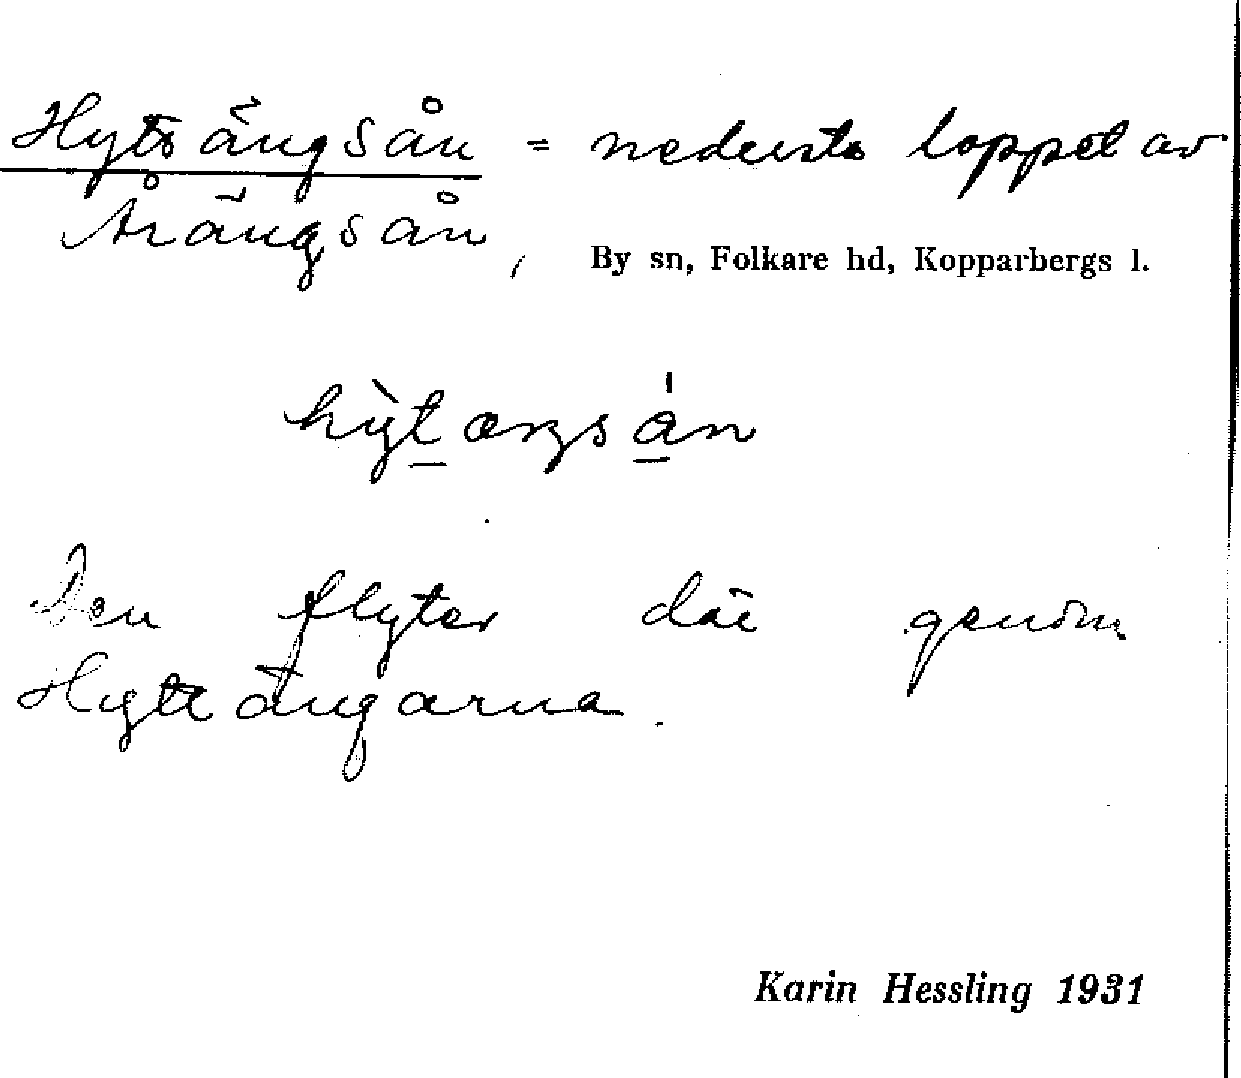 Hyttängsån = nedersta loppet av
Årängsån,
By sn, Folkare hd, Kopparbergs l.
Den flyter där genom
Hyttängarna.
Karin Hessling 1931